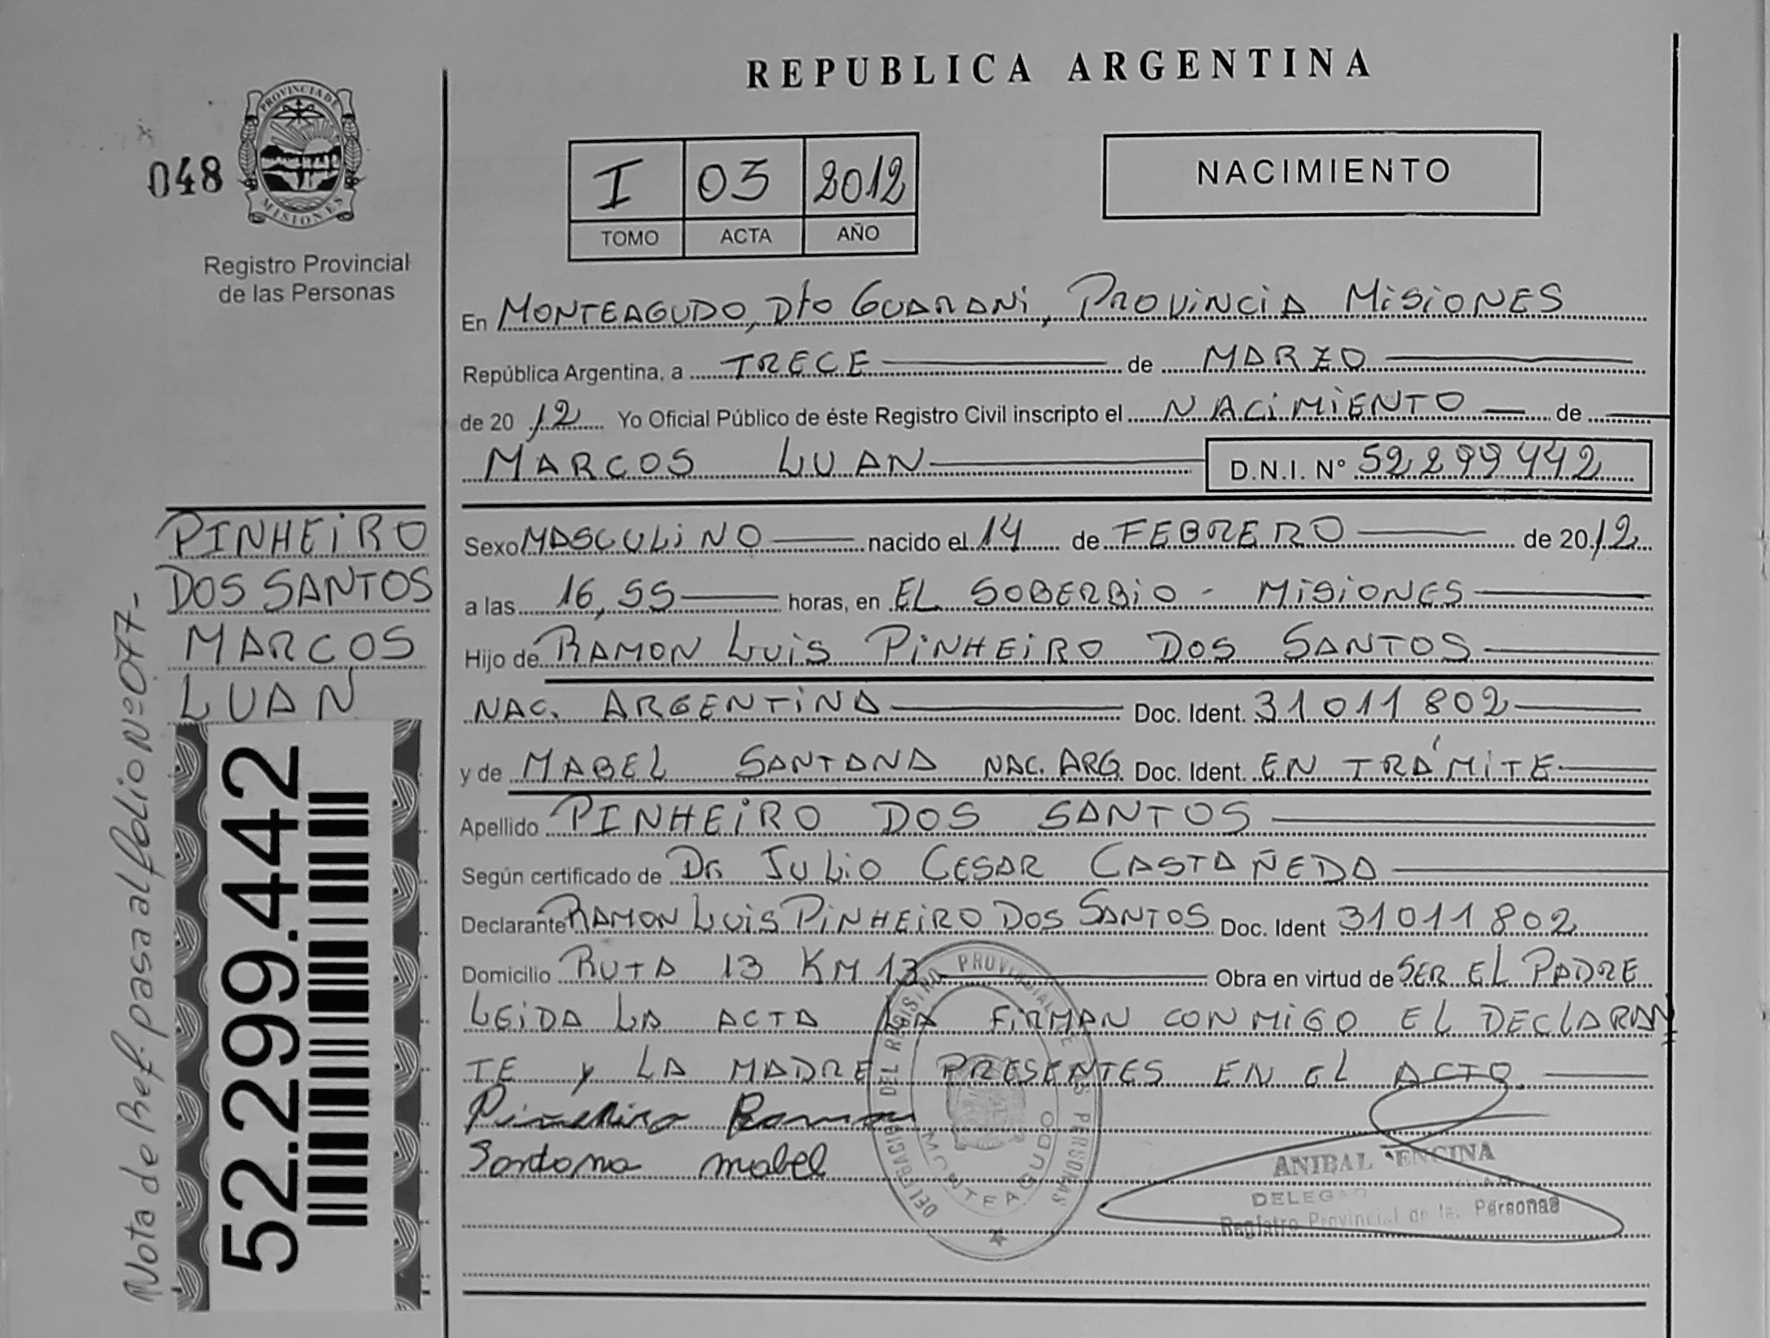 REPUBLICA ARGENTINA
048
PROVINCIA DE
MISIONES
Registro Provincial
de las Personas
I 03 2012
TOMO ACTA AÑO
NACIMIENTO
En MONTEAGUDO, Dto GUARANI, PROVINCIA MISIONES
República Argentina, a TRECE de MARZO
de 2012 Yo Oficial Público de éste Registro Civil inscripto el NACIMIENTO de
MARCOS LUAN D.N.I. Nº 52299442
PINHEIRO
DOS SANTOS
MARCOS
LUAN
52.299.442
Nota de Ref. pasa al folio Nº 077-
Sexo MASCULINO nacido el 14 de FEBRERO de 2012
a las 16,55 horas, en EL SOBERBIO - MISIONES
Hijo de RAMON LUIS PINHEIRO DOS SANTOS
NAC. ARGENTINA Doc. Ident. 31011802
y de MABEL SANTANA NAC. ARG. Doc. Ident. EN TRÁMITE
Apellido PINHEIRO DOS SANTOS
Según certificado de Dr. JULIO CESAR CASTAÑEDA
Declarante RAMON LUIS PINHEIRO DOS SANTOS Doc. Ident 31011802
Domicilio RUTA 13 KM 13 Obra en virtud de SER EL PADRE
LEIDA LA ACTA LA FIRMAN CONMIGO EL DECLARAN
TE Y LA MADRE PRESENTES EN EL ACTO.
Pinheiro Ramon
Santana mabel
DELEGACION DEL REGISTRO PROVINCIAL DE LAS PERSONAS
MONTEAGUDO
ANIBAL ENCINA
Registro Provincial de las Personas